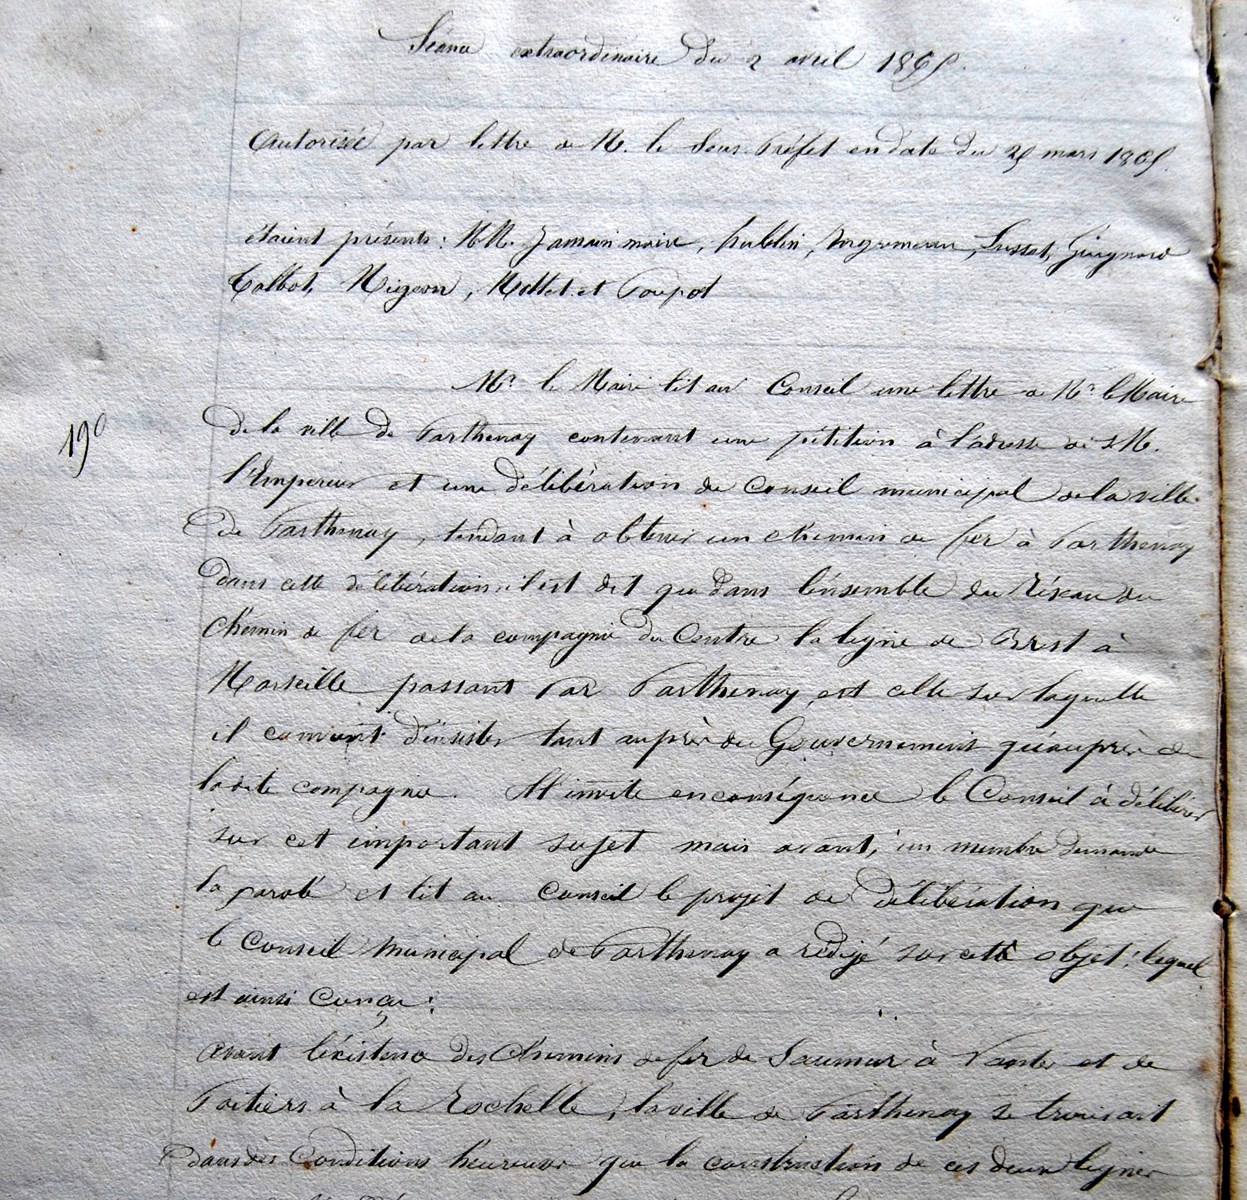 Séance extraordinaire du 2 avril 1865.
Autorisée par lettre de M. le Sous Préfet en date du 29 mars 1865.
étaient présents : MM. Jamain maire, hublin, Ingremeau, Sussat, Guignard
Talbot, Migeon, Millet et Poupot
Mr le Maire lit au Conseil une lettre de Mr le Maire
190
de la ville de Parthenay contenant une pétition à l'adresse de S.M.
l'Empereur et une délibération du Conseil municipal de la ville
de Parthenay, tendant à obtenir un chemin de fer à Parthenay
dans cette délibération il est dit que dans l'ensemble du réseau du
chemin de fer de la compagnie du Centre la ligne de Brest à
Marseille passant Par Parthenay, est celle sur laquelle
il convient d'insister tant auprès du Gouvernement qu'auprès de
la dite compagnie. M invite en conséquence le Conseil à délibérer
sur cet important sujet mais avant, un membre demande
la parole et lit au Conseil le projet de délibération que
le Conseil Municipal de Parthenay a rédigé sur cette objet ; lequel
est ainsi conçu :
Avant l'éxistence des Chemins de fer de Saumur à Nantes et de
Poitiers à la Rochelle, la ville de Parthenay se trouvait
dans des Conditions heureuses que la construction de ces deux lignes